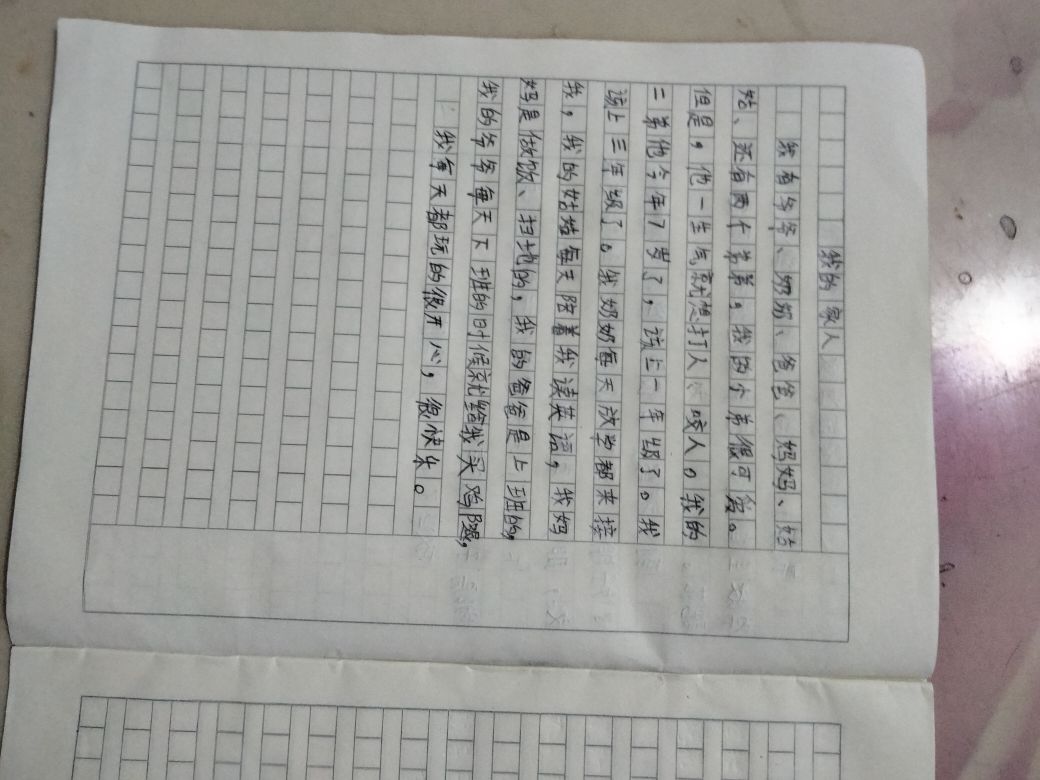 我的家人
我有爷爷、奶奶、爸爸、妈妈、姑
姑、还有两个弟弟。我的小弟很可爱。
但是,他一生气就想打人、咬人。我的
二弟他今年7岁了,该上一年级了。我
该上三年级了。我奶奶每天放学都来接
我,我的姑姑每天陪着我读英语,我妈
妈是做饭、扫地的,我的爸爸是上班的,
我的爷爷每天下班的时候就给我买鸡腿,
我每天都玩的很开心,很快乐。